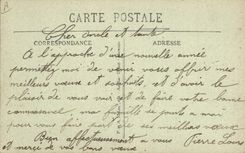 CARTE POSTALE
Cher oncle et tante
CORRESPONDANCE
ADRESSE
A l'approche d'une nouvelle année
permettez moi de venir vous offrir mes
meilleurs vœux et souhaits, et d'avoir le
plaisir de vous voir et de faire votre bonne
connaissance, ma famille se joint à moi
pour vous faire ses meilleurs vœux
Bien affectueusement à vous Pierre Louis
et merci de vos bons vœux.